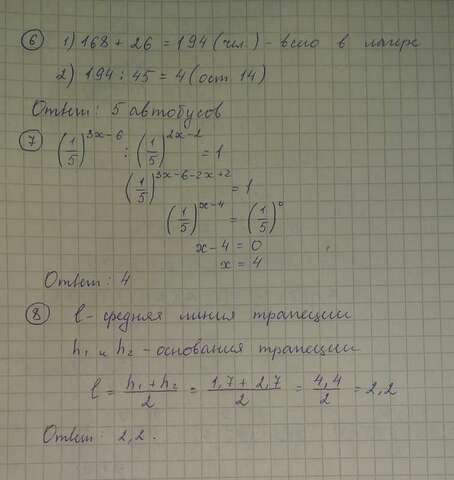 6 1) 168 + 26 = 194 (чел) - всего в лагере
2) 194 : 45 = 4 (ост 14)
Ответ: 5 автобусов
7 (1/5)^(3x-6) : (1/5)^(2x-2) = 1
(1/5)^(3x-6-2x+2) = 1
(1/5)^(x-4) = (1/5)^0
x - 4 = 0
x = 4
Ответ: 4
8 l - средняя линия трапеции
h₁ и h₂ - основания трапеции
l = (h₁ + h₂)/2 = (1,7 + 2,7)/2 = 4,4/2 = 2,2
Ответ: 2,2.